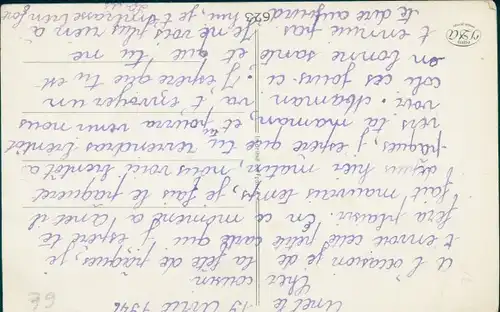 Anet le
19 Avril 1946
Cher
cousin
A l'occasion de
la fête de pâques, je
t'envoie cete petite carte qui j'espère te
fera plaisir. En ce moment à Anet il
fait mauvais temps, je fais le paqueret
depuis hier matin, nous voici bientôt à
pâques, j'espère que tu reviendras bientôt
vers ta maman, et tu pourra venir nous
voir. Maman va t'envoyer un
colis ces jours ci. J'espère que tu est
en bonne santé et que tu ne
t'ennuie pas. Je ne vois plus rien à
te dire aujourd'hui, je t'embrasse bien fort